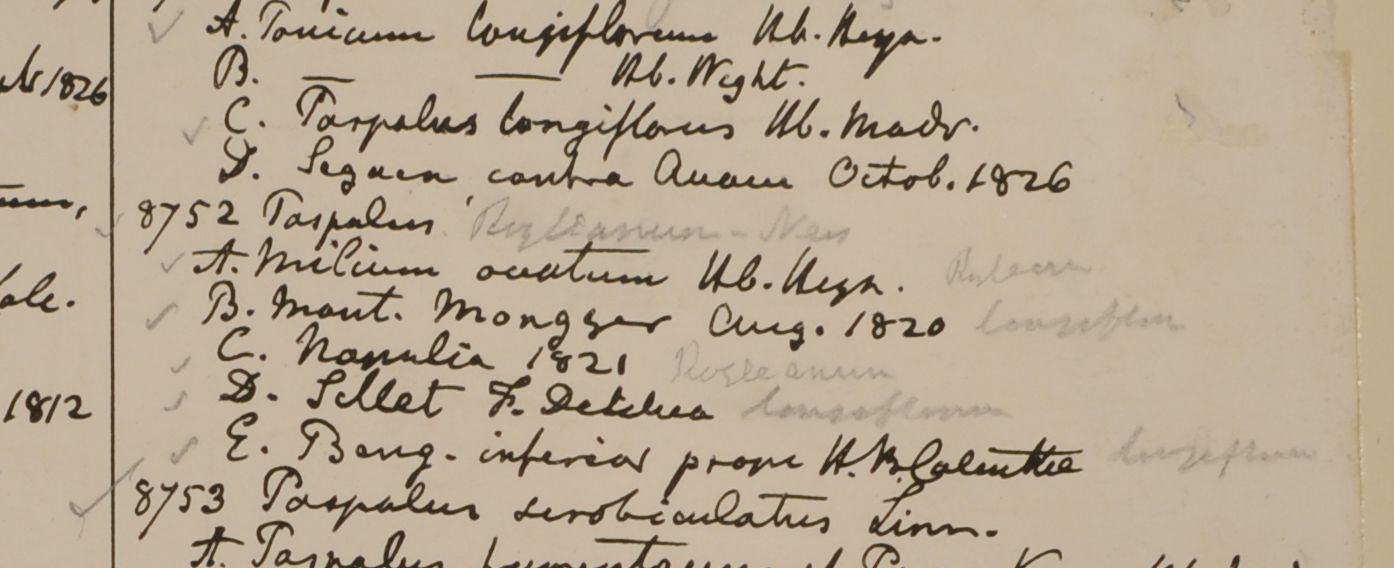 A. Panicum longiflorum Hb. Heyn.
B. — — Hb. Wight.
ub 1826
C. Paspalus longiflorus Hb. Madr.
D. Segaen contra Avam Octob. 1826
um,
8752 Paspalus Royleanum - Nees
A. Milium ovatum Hb. Heyn. Roylean
ale.
B. Mont. Mongger Aug. 1820 longiflor
C. Napalia 1821 Royleanum
1812
D. Sillet F. De longiflorum
E. Beng. inferior prope H. B. Calcutta longiflorum
8753 Paspalus scrobiculatus Linn.
A. Paspalus